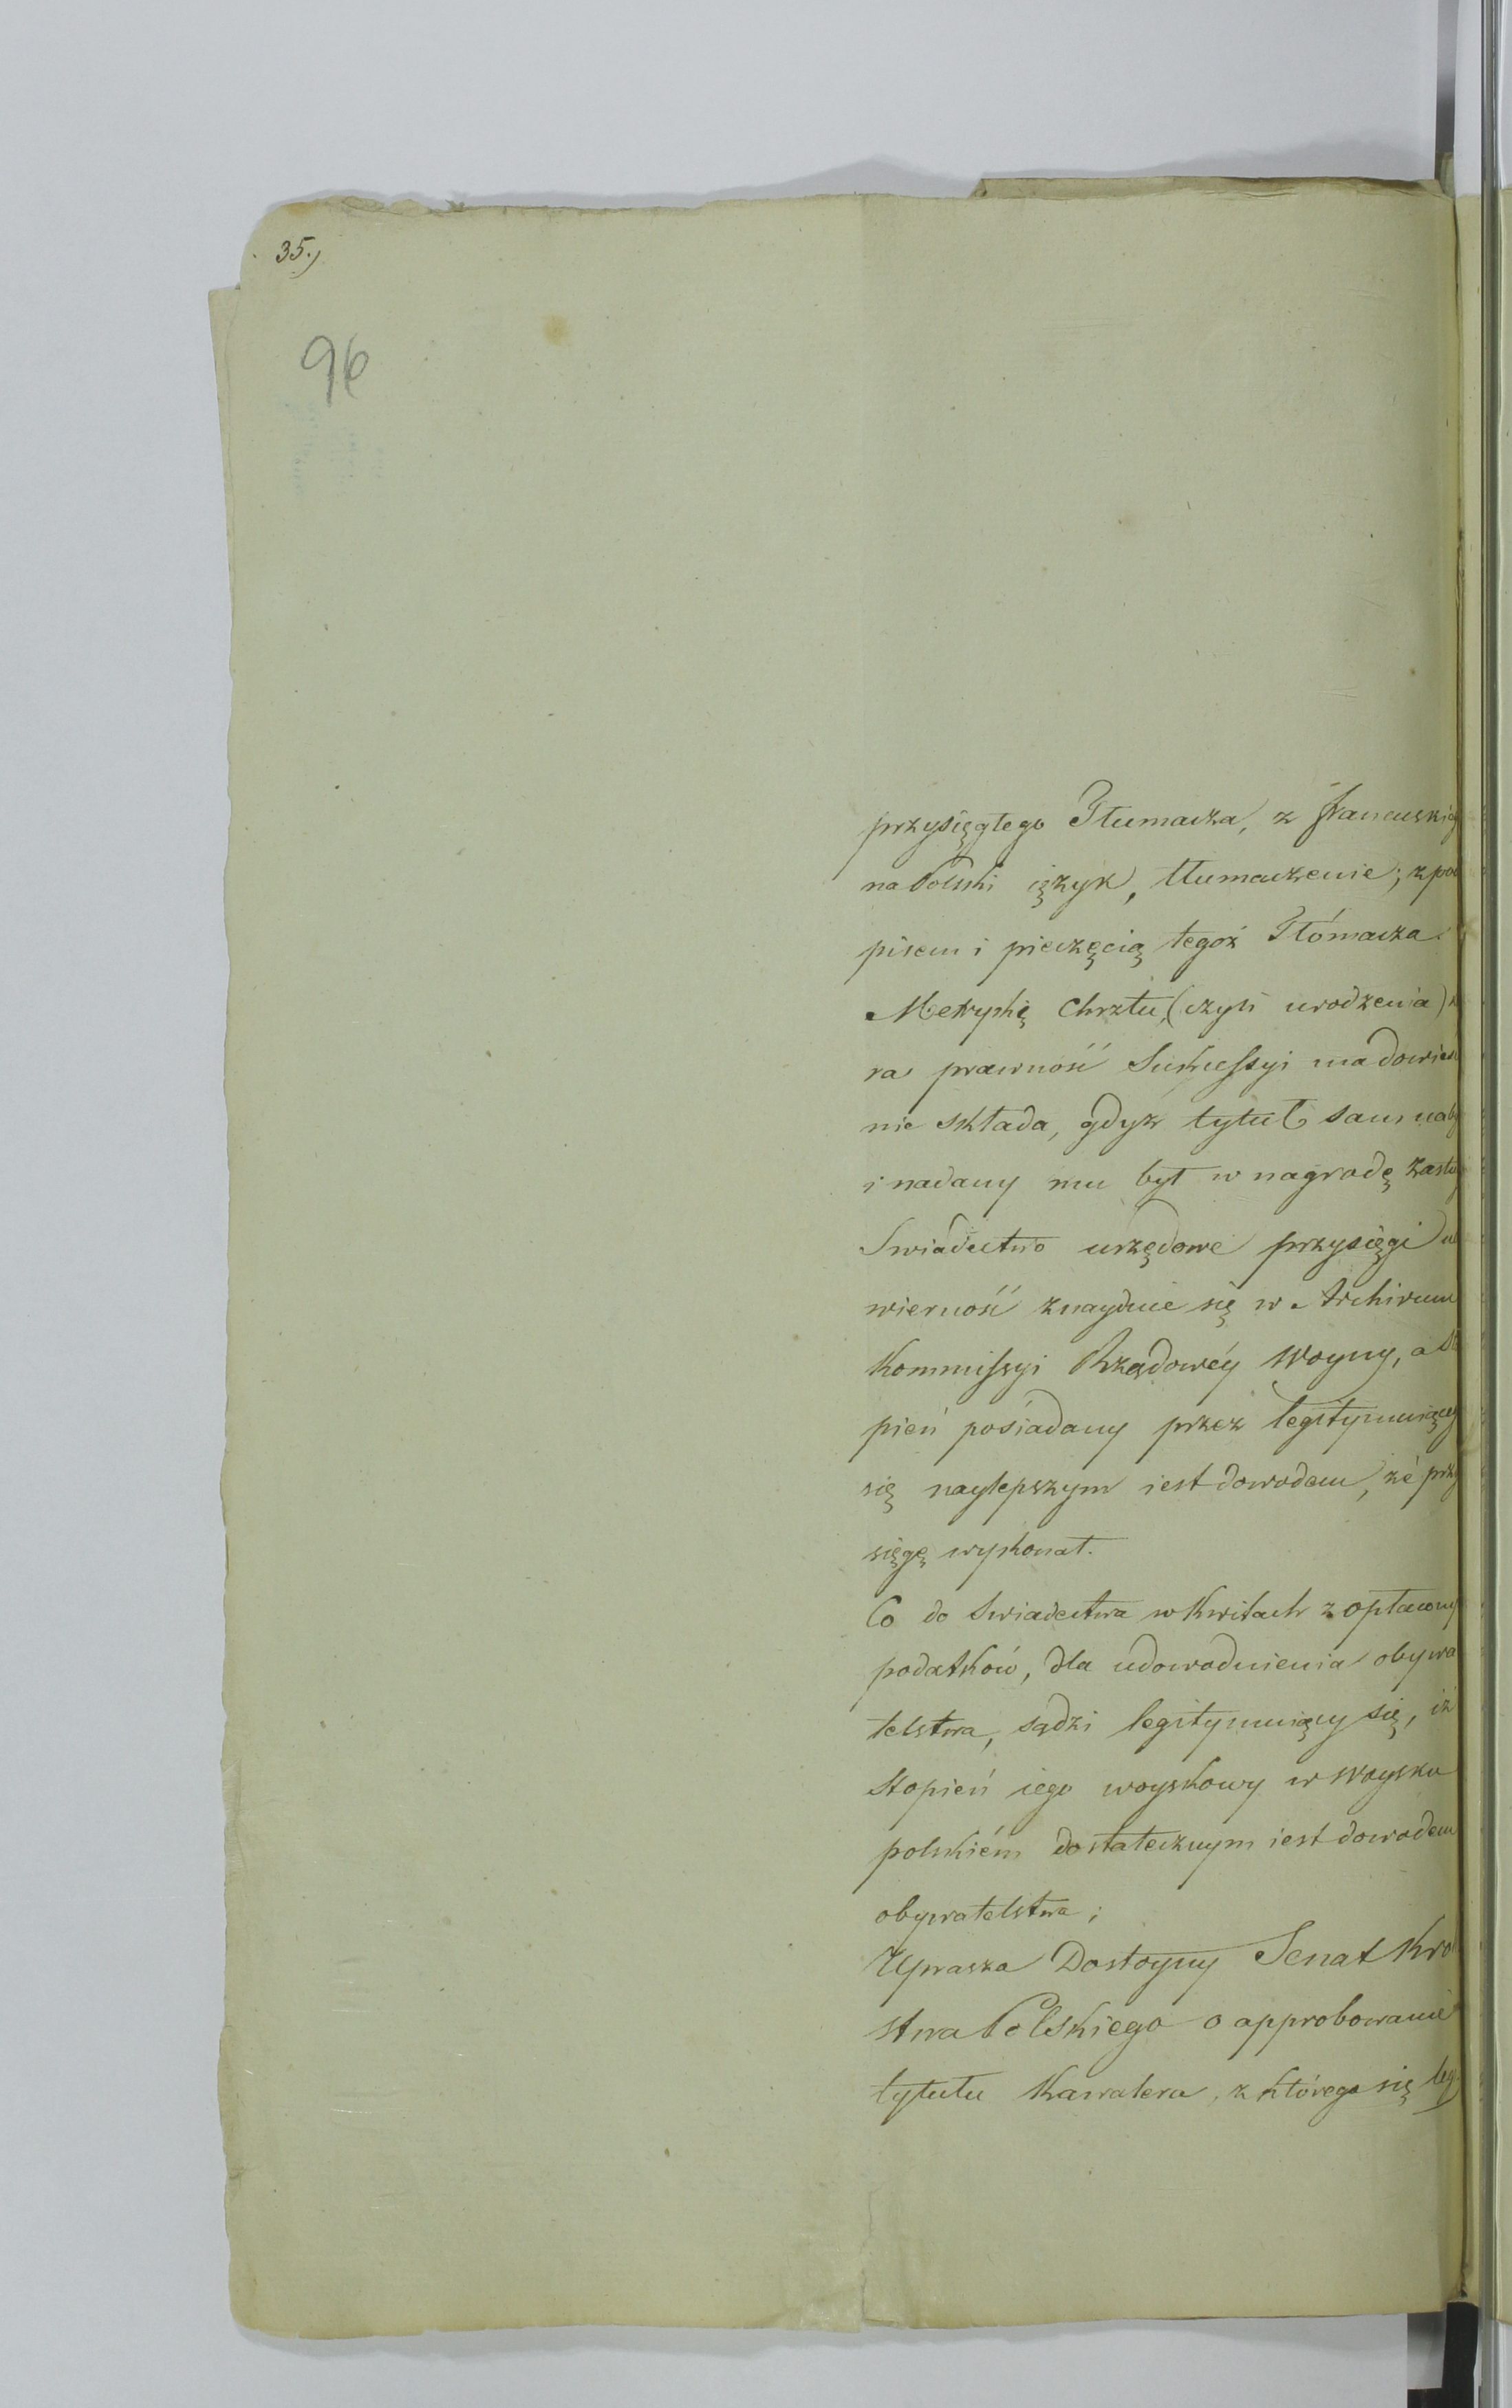 35.)
96
przysięgłego Tłumacza, z francuskieg
na Polski ięzyk, tłumaczenie; z pod
pisem i pieczęcią tegoż Tłómacza.
Metrykę Chrztu, (czyli urodzenia) k
ra prawność Sukcessyi ma dowieś
nie składa, gdyż tytuł sam naby
i nadany mu był w nagrodę zasłu
Swiadectwo urzędowe przysięgi
wierność znayduie się w Archivum
Kommissyi Rządowéy Woyny, a Sto
pień posiadany przez legitymuiący
się naylepszym iest dowodem, że przy
sięgę wykonał.
Co do Swiadectwa w Kwitach z opłacony
podatków, dla udowodnienia obywa
telstwa, sądzi legitymuiący się, iż
Stopień iego woyskowy w Woysku
polskiém dostatecznym iest dowodem
obywatelstwa;
Uprasza Dostoyny Senat Kró
stwa Polskiego o approbowanie
tytułu Kawalera, z którego się leg